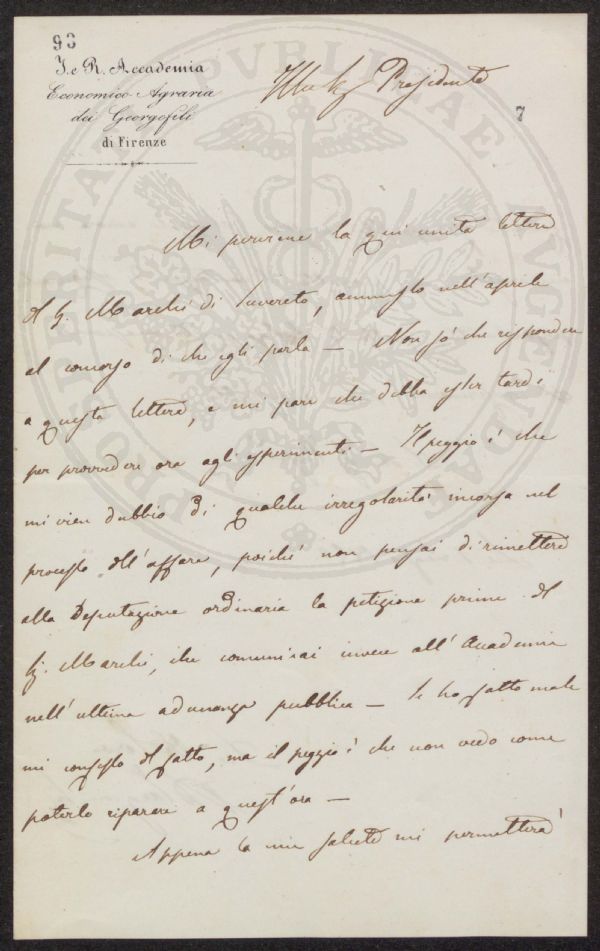 93
I. e R. Accademia
Economico-Agraria
dei Georgofili
di Firenze
Presidente
7
PROSPERITATI PUBLICAE AUGENDAE
Mi perviene la qui unita lettera
del Sig. Marchi di Suvereto, ammesso nell'aprile
al concorso di che egli parla — Non so che rispondere
a questa lettera, e mi pare che debba esser tardi
per provvedere ora agli esperimenti — Il peggio è che
mi vien dubbio di qualche irregolarità incorsa nel
processo dell'affare, poiché non pensai di rimettere
alla Deputazione ordinaria la petizione prima del
Sig. Marchi, che comunicai invece all'Accademia
nell'ultima adunanza pubblica — Se ho fatto male
mi confesso del fatto, ma il peggio è che non vedo come
poterlo riparare a quest'ora —
Appena la mia salute mi permetterà